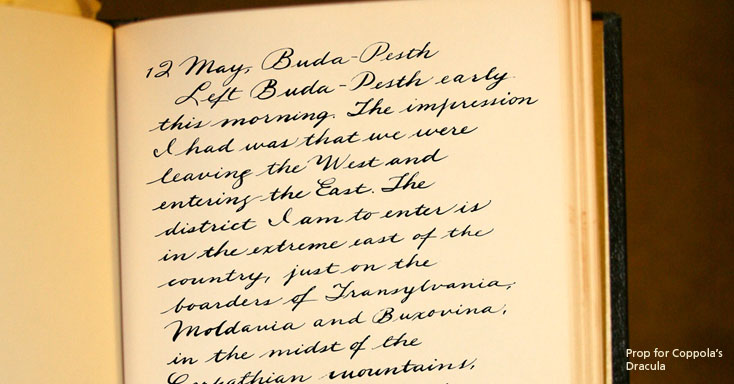 12 May, Buda-Pesth
Left Buda-Pesth early
this morning. The impression
I had was that we were
leaving the West and
entering the East. The
district I am to enter is
in the extreme east of the
country, just on the
boarders of Transylvania,
Moldavia and Buxovina,
in the midst of the
Carpathian mountains,
Prop for Coppola's
Dracula